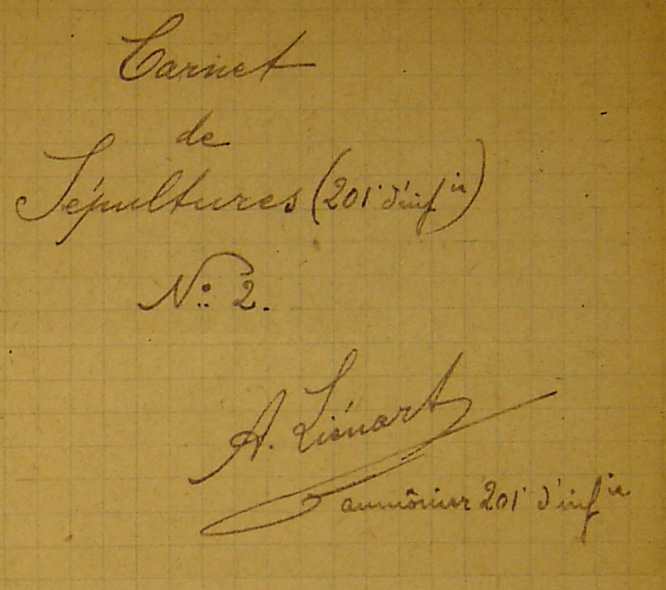 Carnet
de
Sépultures (201e d'infie)
No: 2.
A. Liénart
aumônier 201e d'infie